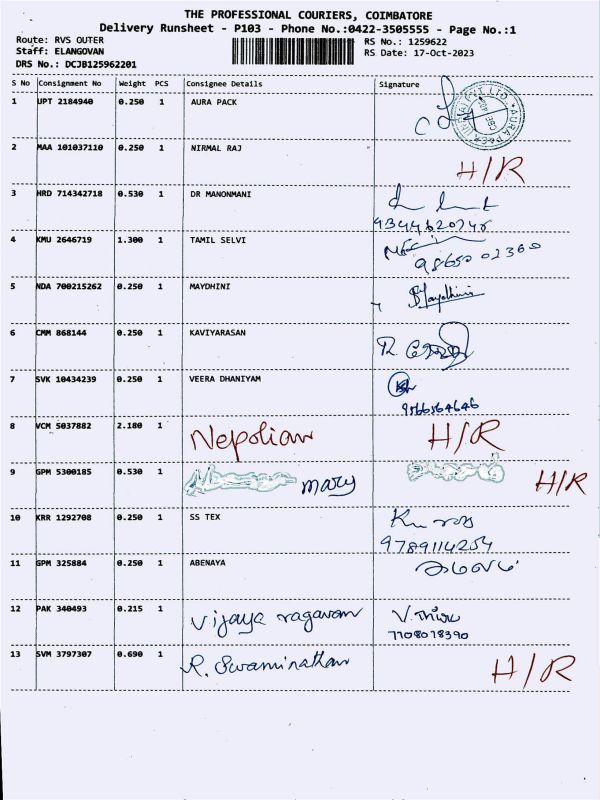 THE PROFESSIONAL COURIERS, COIMBATORE
Delivery Runsheet - P103 - Phone No.:0422-3505555 - Page No.:1
Route: RVS OUTER RS No.: 1259622
Staff: ELANGOVAN RS Date: 17-Oct-2023
DRS No.: DCJB125962201
S No Consignment No Weight PCS Consignee Details Signature
1 UPT 2184940 0.250 1 AURA PACK
2 MAA 101037110 0.250 1 NIRMAL RAJ H/R
3 HRD 714342718 0.530 1 DR MANONMANI
9344620746
4 KMU 2646719 1.300 1 TAMIL SELVI
98650 02360
5 NDA 700215262 0.250 1 MAYDHINI Maydhini
6 CMM 868144 0.250 1 KAVIYARASAN
7 SVK 10434239 0.250 1 VEERA DHANIYAM
9566564646
8 VCM 5037882 2.180 1 Nepolian H/R
9 GPM 5300185 0.530 1 mary H/R
10 KRR 1292708 0.250 1 SS TEX
9789114254
11 GPM 325884 0.250 1 ABENAYA
12 PAK 340493 0.215 1 Vijaya ragavan V.
7708078390
13 SVM 3797307 0.690 1 R. Swaminathan H/R